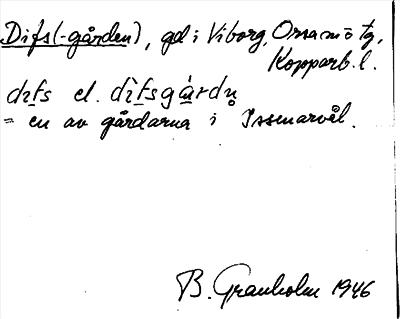 Difs(-gården), gd i Viborg, Orsa snö tg,
Kopparb. l.
difs el. difsgårdn̥
= en av gårdarna i Issmarvål.
B. Granholm 1946